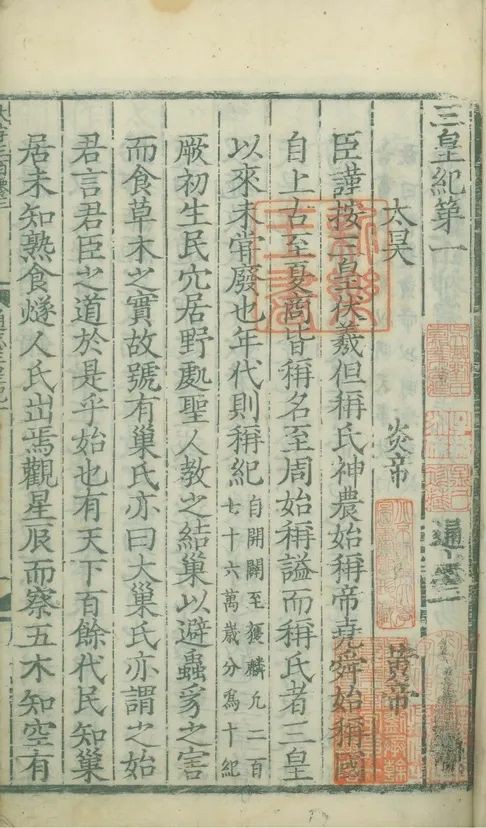 三皇紀第一 通志一
太昊 炎帝 黃帝
臣謹按三皇伏羲但稱氏神農始稱帝堯舜始稱國
自上古至夏商皆稱名至周始稱謚而稱氏者三皇
以來未甞廢也年代則稱紀
自開闢至獲麟凡二百
七十六萬歲分爲十紀
厥初生民穴居野處聖人教之結巢以避蟲豸之害
而食草木之實故號有巢氏亦曰大巢氏亦謂之始
君言君臣之道於是乎始也有天下百餘代民知巢
居未知熟食燧人氏出焉觀星辰而察五木知空有